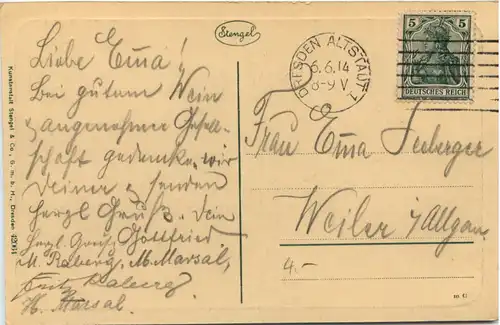 Stengel
Liebe Ema!
Bei gutem Wein
& angenehmer Gesell-
schaft gedenken wir
Deiner & senden
herzl Gruß. Dein
Gottfried
herzl. Gruß
M. Raberg, M. Marsal,
M. Marsal.
Kunstanstalt Stengel & Co., G. m. b. H., Dresden
DRESDEN ALTSTADT 1
6.6.14
8-9 V
5 5
DEUTSCHES REICH
Frau Ema Seeberger
Weiler i/Allgäu
4.-
m G